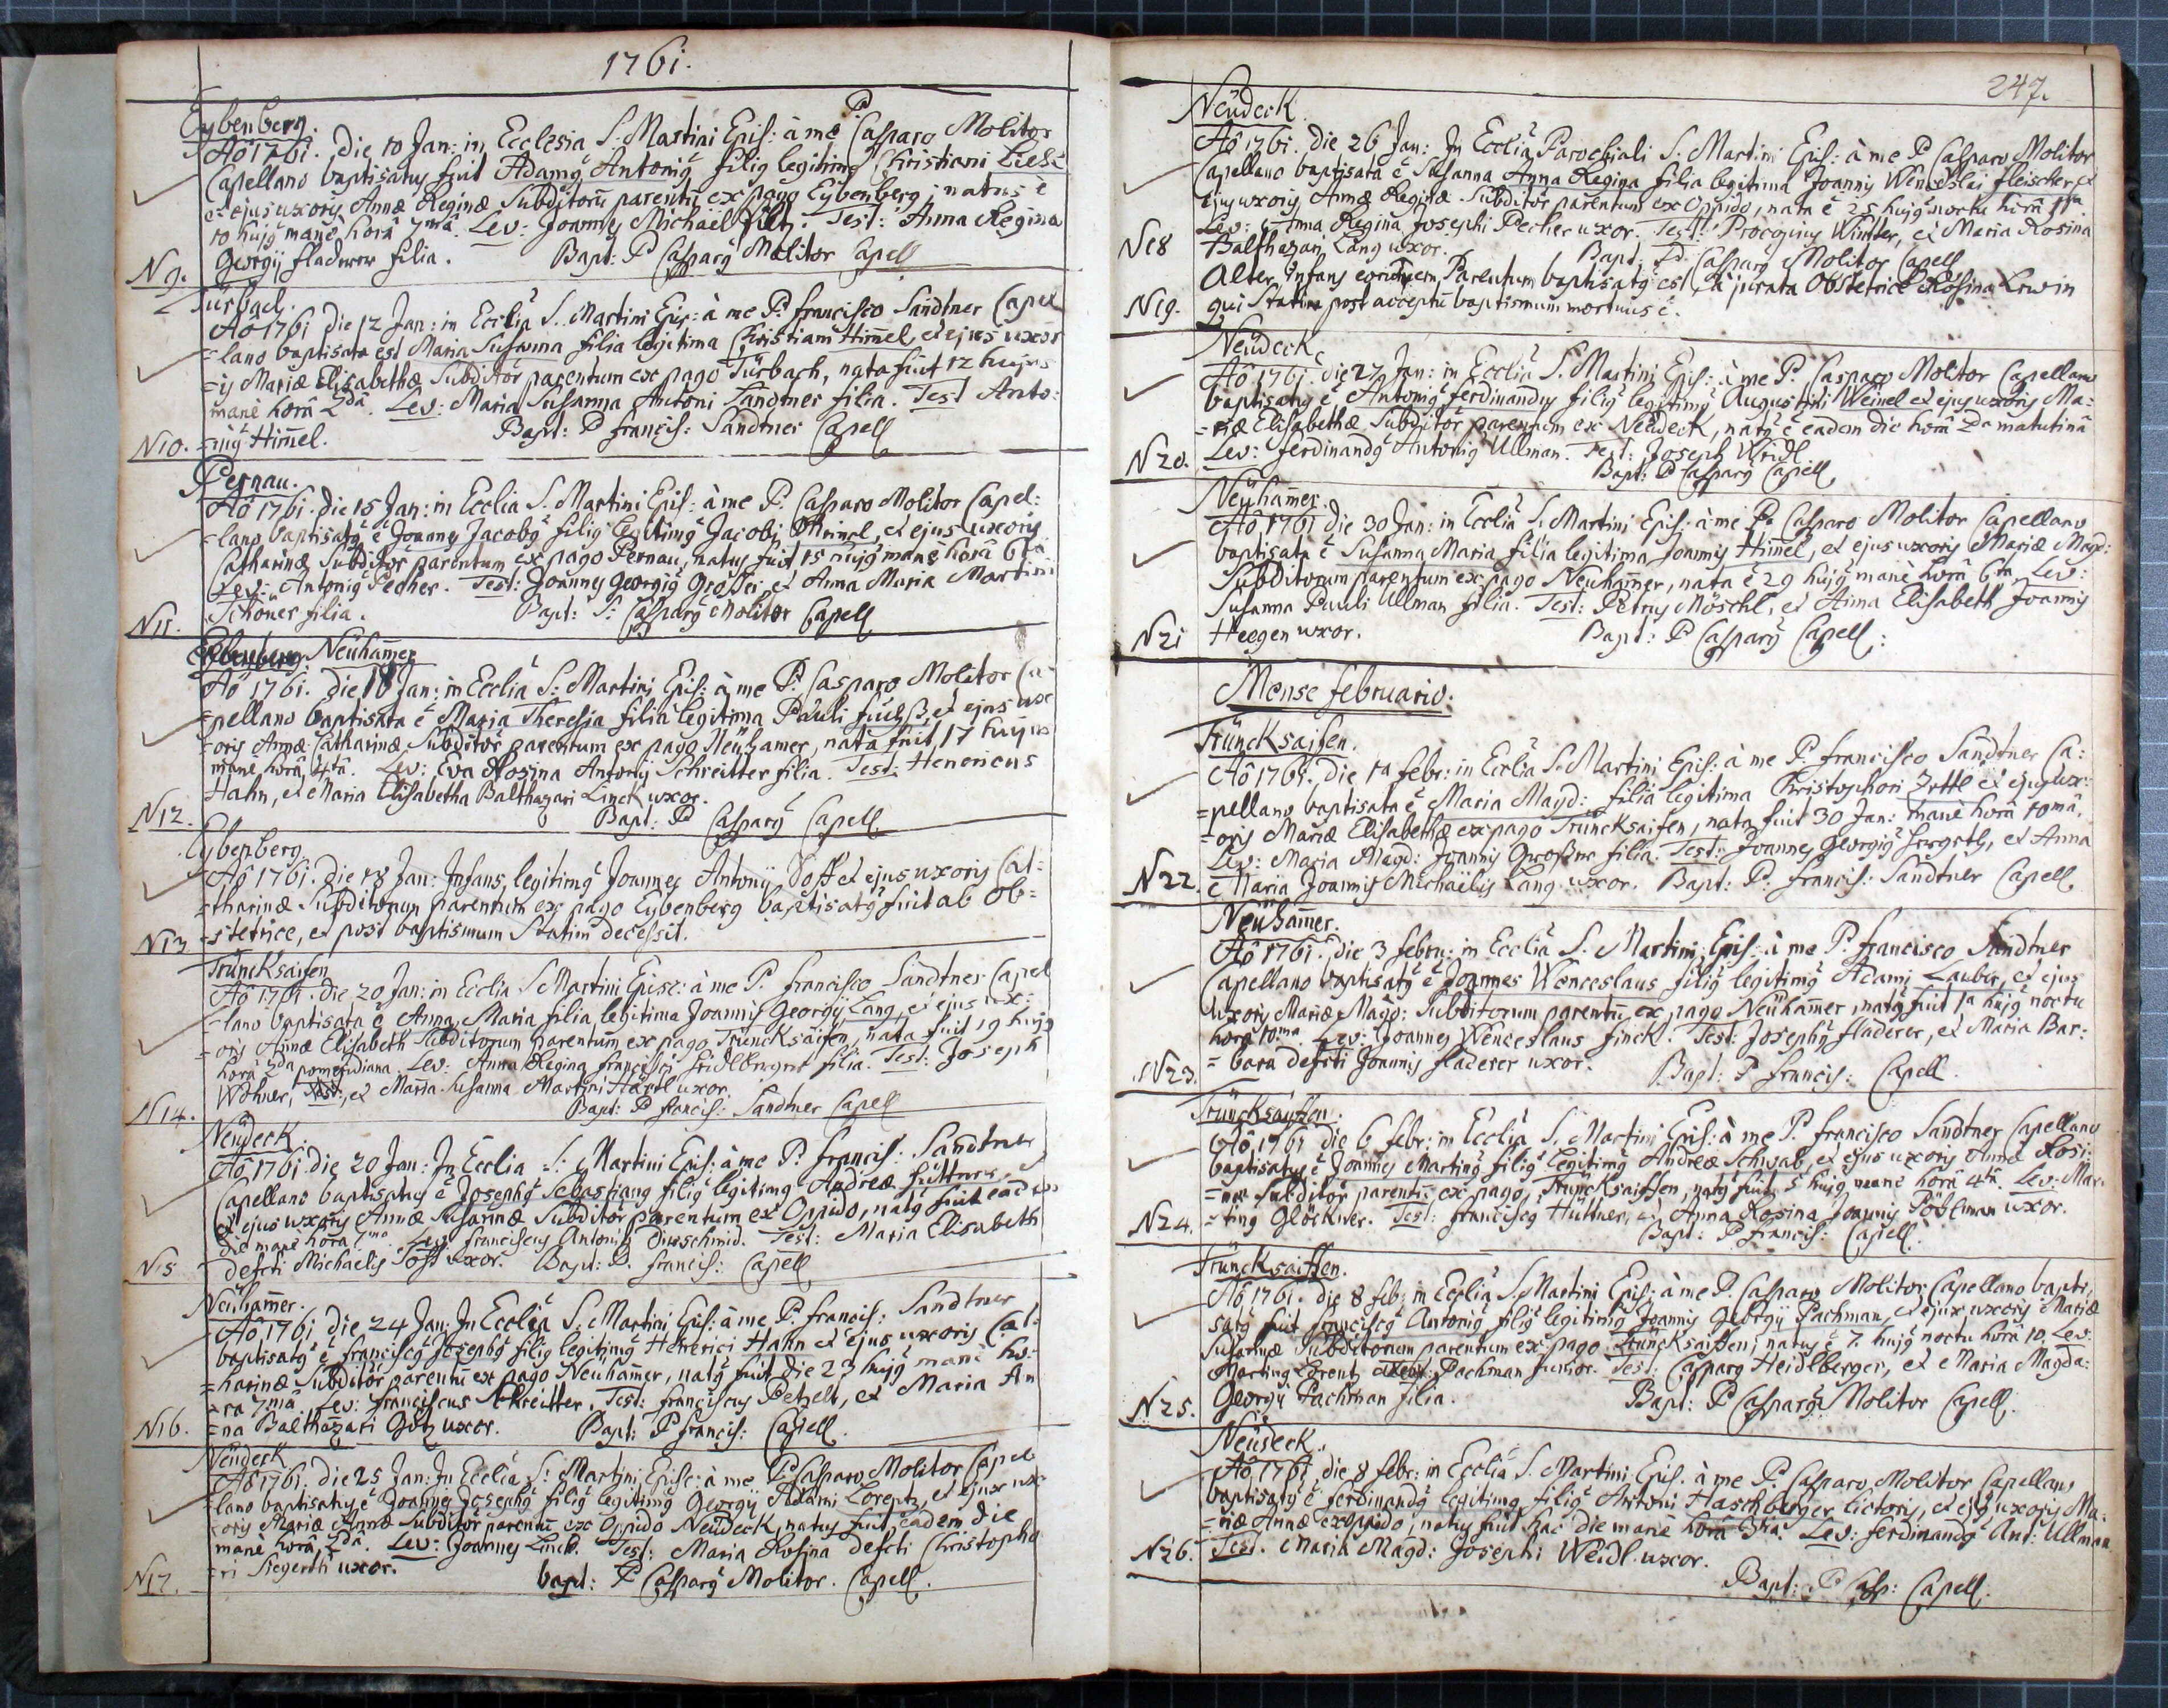 1761.
Eybenberg.
Aô 1761. die 10 Jan: in Ecclesia S. Martini Epis: à me P. Casparo Molitor
Capellano baptisatus fuit Adamg Antonig filig legitimg Christiani
et ejus uxoris Annæ Reginæ Subditorũ parentũ ex pago Eybenberg, natus ẽ
10 hujg manè horâ 7mâ. Lev: Joannes Michael Test: Anna Regina
N9. Georgij fladerer filia. Bapt: P Casparg Molitor Capell
Aô 1761 die 12 Jan: in Ecclia S. Martini Epis: à me P. Francisco Sandtner Capel
=lano baptisata est Maria Susanna filia legitima Christiani Himel, et ejus uxor
=is Mariæ Elisabethæ Subditor parentum ex pago Türbach, nata fuit 12 hujus
manè horâ 2dâ. Lev: Maria Susanna Antoni Sandtner filia. Test Anto:
N10. =nig Himel. Bapt: P francis: Sandtner Capell
Pernau.
Aô 1761. die 15 Jan: in Ecclia S. Martini Epis: à me P. Casparo Molitor Capel:
=lano baptisatg ẽ Joannes Jacobg filig legitimg Jacobi Meinel, et ejus uxoris
Catharinæ Subditor parentum ex pago Pernau, natus fuit 15 hujg manè horâ 6tâ
Lev: Antonig Pecher. Test: Joannes Georgig Grosser, et Anna Maria Martini
N11. Schöner filia. Bapt: P: Casparg Molitor Capell
Eybenberg. Neühamer
Aô 1761. die 18 Jan: in Ecclia S: Martini Epis: à me P. Casparo Molitor Ca=
=pellano baptisata ẽ Maria Theresia filia legitima Pauli fuchß, et ejus uxc
=oris Annæ Catharinæ Subditor parentum ex pago Neühamer, nata fuit 17 hujus
manè horâ 4tâ. Lev: Eva Rosina Antonij Schreitter filia. Test: Henericus
Hahn, et Maria Elisabetha Balthazari Linck uxor.
N12. Bapt: P Casparg Capell
Eybenberg
Aô 1761. die 18 Jan: Infans legitimg Joannes Antonij et ejus uxoris Cat=
=tharinæ Subditorum parentum ex pago Eybenberg baptisatg fuit ab Ob=
N13 =stetrice, et post baptismum Statim decessit.
Trüncksaifen
Aô 1761. die 20 Jan: in Ecclia S Martini Episc: à me P. Francisco Sandtner Capel
=lano baptisata ẽ Anna Maria filia legitima Joannis Georgij Lang, et ejus ux:
=oris Annæ Elisabeth Subditorum parentum ex pago Trüncksaifen, nata fuit 19 hujg
horâ 2da pomeridiana. Lev: Anna Regina Francisci filia. Test: Joseph
Wöhner, et Maria Susanna Martini uxor.
N14. Bapt: P francis: Sandtner Capell
Neüdeck.
Aô 1761 die 20 Jan: In Ecclia S: Martini Epis: à me P. Francis: Sandtner
Capellano baptisatus ẽ Josephg Sebastiang filig legitimg Andreæ
et ejus uxoris Annæ Susannæ Subditor parentum ex Oppido, natg fuit eadem
die manè horâ 7ma. Lev: franciscus Antonig Test: Maria Elisabeth
N15 defcti Michaelis uxor. Bapt: P. francis: Capell
Neühamer.
Aô 1761 die 24 Jan: In Ecclia S: Martini Epis: à me P. Francis: Sandtner
baptisatg ẽ franciscg Josephg filig legitimg Henerici Hahn et ejus uxoris Cat=
=harinæ Subditor parentũ ex pago Neühamer, natg fuit die 23 hujg manè ho=
=ra 7mâ. Lev: Franciscus Schreitter. Test: franciscus Petzelt, et Maria An
N16. =na Balthazari Götz uxor. Bapt: P francis: Capell.
Neüdeck
Aô 1761. die 25 Jan: In Ecclia S: Martini Episc: à me P. Casparo Molitor Capel
=lano baptisatus ẽ Joannes Josephg filig legitimg Georgij Adami Lorentz, et ejus ux=
=oris Mariæ Annæ Subditor parentũ ex Oppido Neüdeck, natus fuit eadem die
manè horâ 2dâ. Lev: Joannes Linck. Test: Maria Rosina defcti Christopho
N17. =ri Siegerth uxor. bapt: P Casparg Molitor. Capell.
247.
Neüdeck.
Aô 1761. die 26 Jan: In Ecclia Parochiali S. Martini Epis: à me P. Casparo Molitor
Capellano baptisata ẽ Susanna Anna Regina filia legitima Joannis Wenceslai fleischer et
ejus uxoris Annæ Reginæ Subditor parentum ex Oppido, nata ẽ 25 hujg noctu horâ 11ma
Lev: Anna Regina Josephi Pecher uxor. Test: Procopius Winter, et Maria Rosina
N18 Balthazari Lang uxor. Bapt: P. Casparg Molitor Capell
Alter Infans eorundem Parentum baptisatg est à jurata Obstetrice Rosina Erwin
N19. qui Statim post acceptũ baptismum mortuus ẽ.
Neüdeck
Aô 1761. die 27 Jan: in Ecclia S. Martini Epis: à me P. Casparo Molitor Capellano
baptisatg ẽ Antonig ferdinandus filig legitimg Augustini Weinel et ejus uxoris Ma=
=riæ Elisabethæ Subditor parentum ex Neüdeck, natg ẽ eadem die horâ 2da matutinâ
N20. Lev: ferdinandg Antonig Ullman. Test: Joseph Weidl
Bapt: P Casparg Capell
Neühamer.
Aô 1761 die 30 Jan: in Ecclia S. Martini Epis: à me P. Casparo Molitor Capellano
baptisata ẽ Susanna Maria filia legitima Joannis Himel, et ejus uxoris Mariæ Magd:
Subditorum parentum ex pago Neuhamer, nata ẽ 29 hujg manè horâ 6ta. Lev:
Susanna Pauli Ullman filia. Test: Petrus Möschl, et Anna Elisabeth Joannis
N21 Heegen uxor. Bapt: P Casparg Capell:
Mense februario.
Trüncksaifen.
Aô 1761. die 1a febr: in Ecclia S. Martini Epis: à me P. Francisco Sandtner Ca:
=pellano baptisata ẽ Maria Magd: filia legitima Christophori et ejus ux:
=oris Mariæ Elisabethæ ex pago Trüncksaifen, nata fuit 30 Jan: manè horâ 10mâ.
Lev: Maria Magd: Joannis Großer filia. Test: Joannes Georgig et Anna
N22. Maria Joannis Michaëlis Lang uxor. Bapt: P: francis: Sandtner Capell
Neühamer.
Aô 1761. die 3 febru: in Ecclia S. Martini Epis: à me P. Francisco Sandtner
Capellano baptisatg ẽ Joannes Wenceslaus filig legitimg Adami Lauber, et ejus
uxoris Mariæ Magd: Subditorum parentũ ex pago Neühamer, natg fuit 1a hujg noctu
horâ 10ma. Lev: Joannes Wenceslaus finck. Test: Josephg fladerer, et Maria Bar:
N23. =bara defcti Joannis fladerer uxor. Bapt: P francis: Capell.
Trüncksayffen.
Aô 1761 die 6 febr: in Ecclia S. Martini Epis: à me P. Francisco Sandtner Capellano
baptisatus ẽ Joannes Marting filig legitimg Andreæ Schwab, et ejus uxoris Annæ Rosi:
=næ Subditor parentũ ex pago Trüncksaiffen, natg fuit 5 hujg manè horâ 4ta. Lev: Mar=
N24. =ting Glöckner. Test: franciscg Huttner, et Anna Rosina Joannis Pöhlman uxor.
Bapt: P francis: Capell.
Trüncksaiffen.
Aô 1761. die 8 feb: in Ecclia S. Martini Epis: à me P. Casparo Molitor Capellano bapti:
satg fuit franciscg Antonig filig legitimg Joannis Georgij Pachman, et ejus uxoris Mariæ
Susannæ Subditorum parentum ex pago Trüncksaiffen, natus ẽ 7 hujg noctu horâ 10. Lev:
Marting Lorentz Pachman Junior. Test: Casparg Heidlberger, et Maria Magda:
N25. Georgij Pachman filia. Bapt: P Casparg Molitor Capell.
Neüdeck.
Aô 1761 die 8 febr: in Ecclia S. Martini Epis. à me P. Casparo Molitor Capellano
baptisatg ẽ ferdinandg legitimg filig Antoni Haschberger lictoris, et ejg uxoris Ma:
=riæ Annæ ex oppido, natus fuit hac die manè horâ 3tia. Lev: ferdinandg Ant: Ullman
N26. Test. Maria Magd: Josephi Weidl uxor.
Bapt: P Casp: Capell.